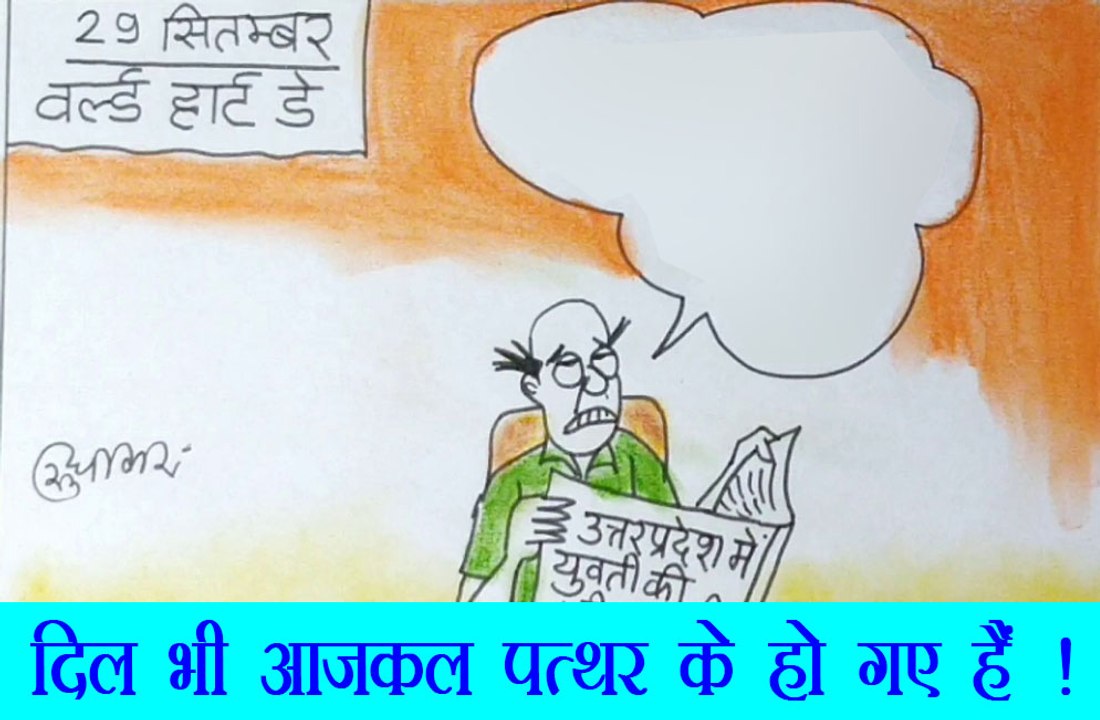 29 सितम्बर
वर्ल्ड हार्ट डे
सुधाकर
उत्तरप्रदेश में
युवती की
दिल भी आजकल पत्थर के हो गए हैं !